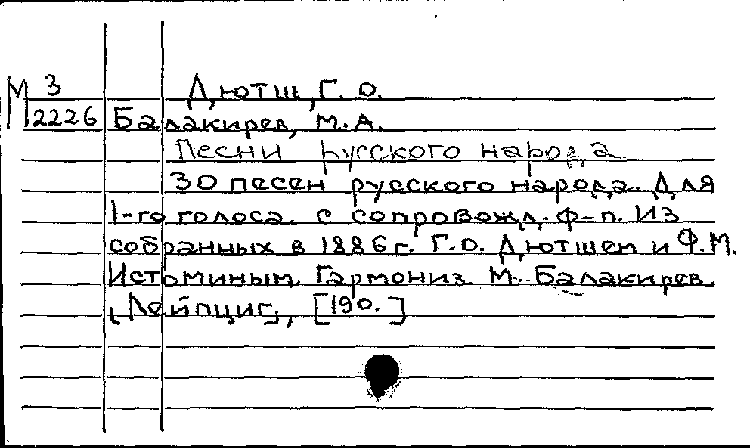 М 3 Дютш, Г. О.
2226 Балакирев, М.А.
Песни русского народа
30 песен русского народа. Для
1-го голоса с сопровожд. ф-п. Из
собранных в 1886г. Г.О. Дютшем и Ф.М.
Истоминым. Гармониз. М. Балакирев.
[Лейпциг], [190.]